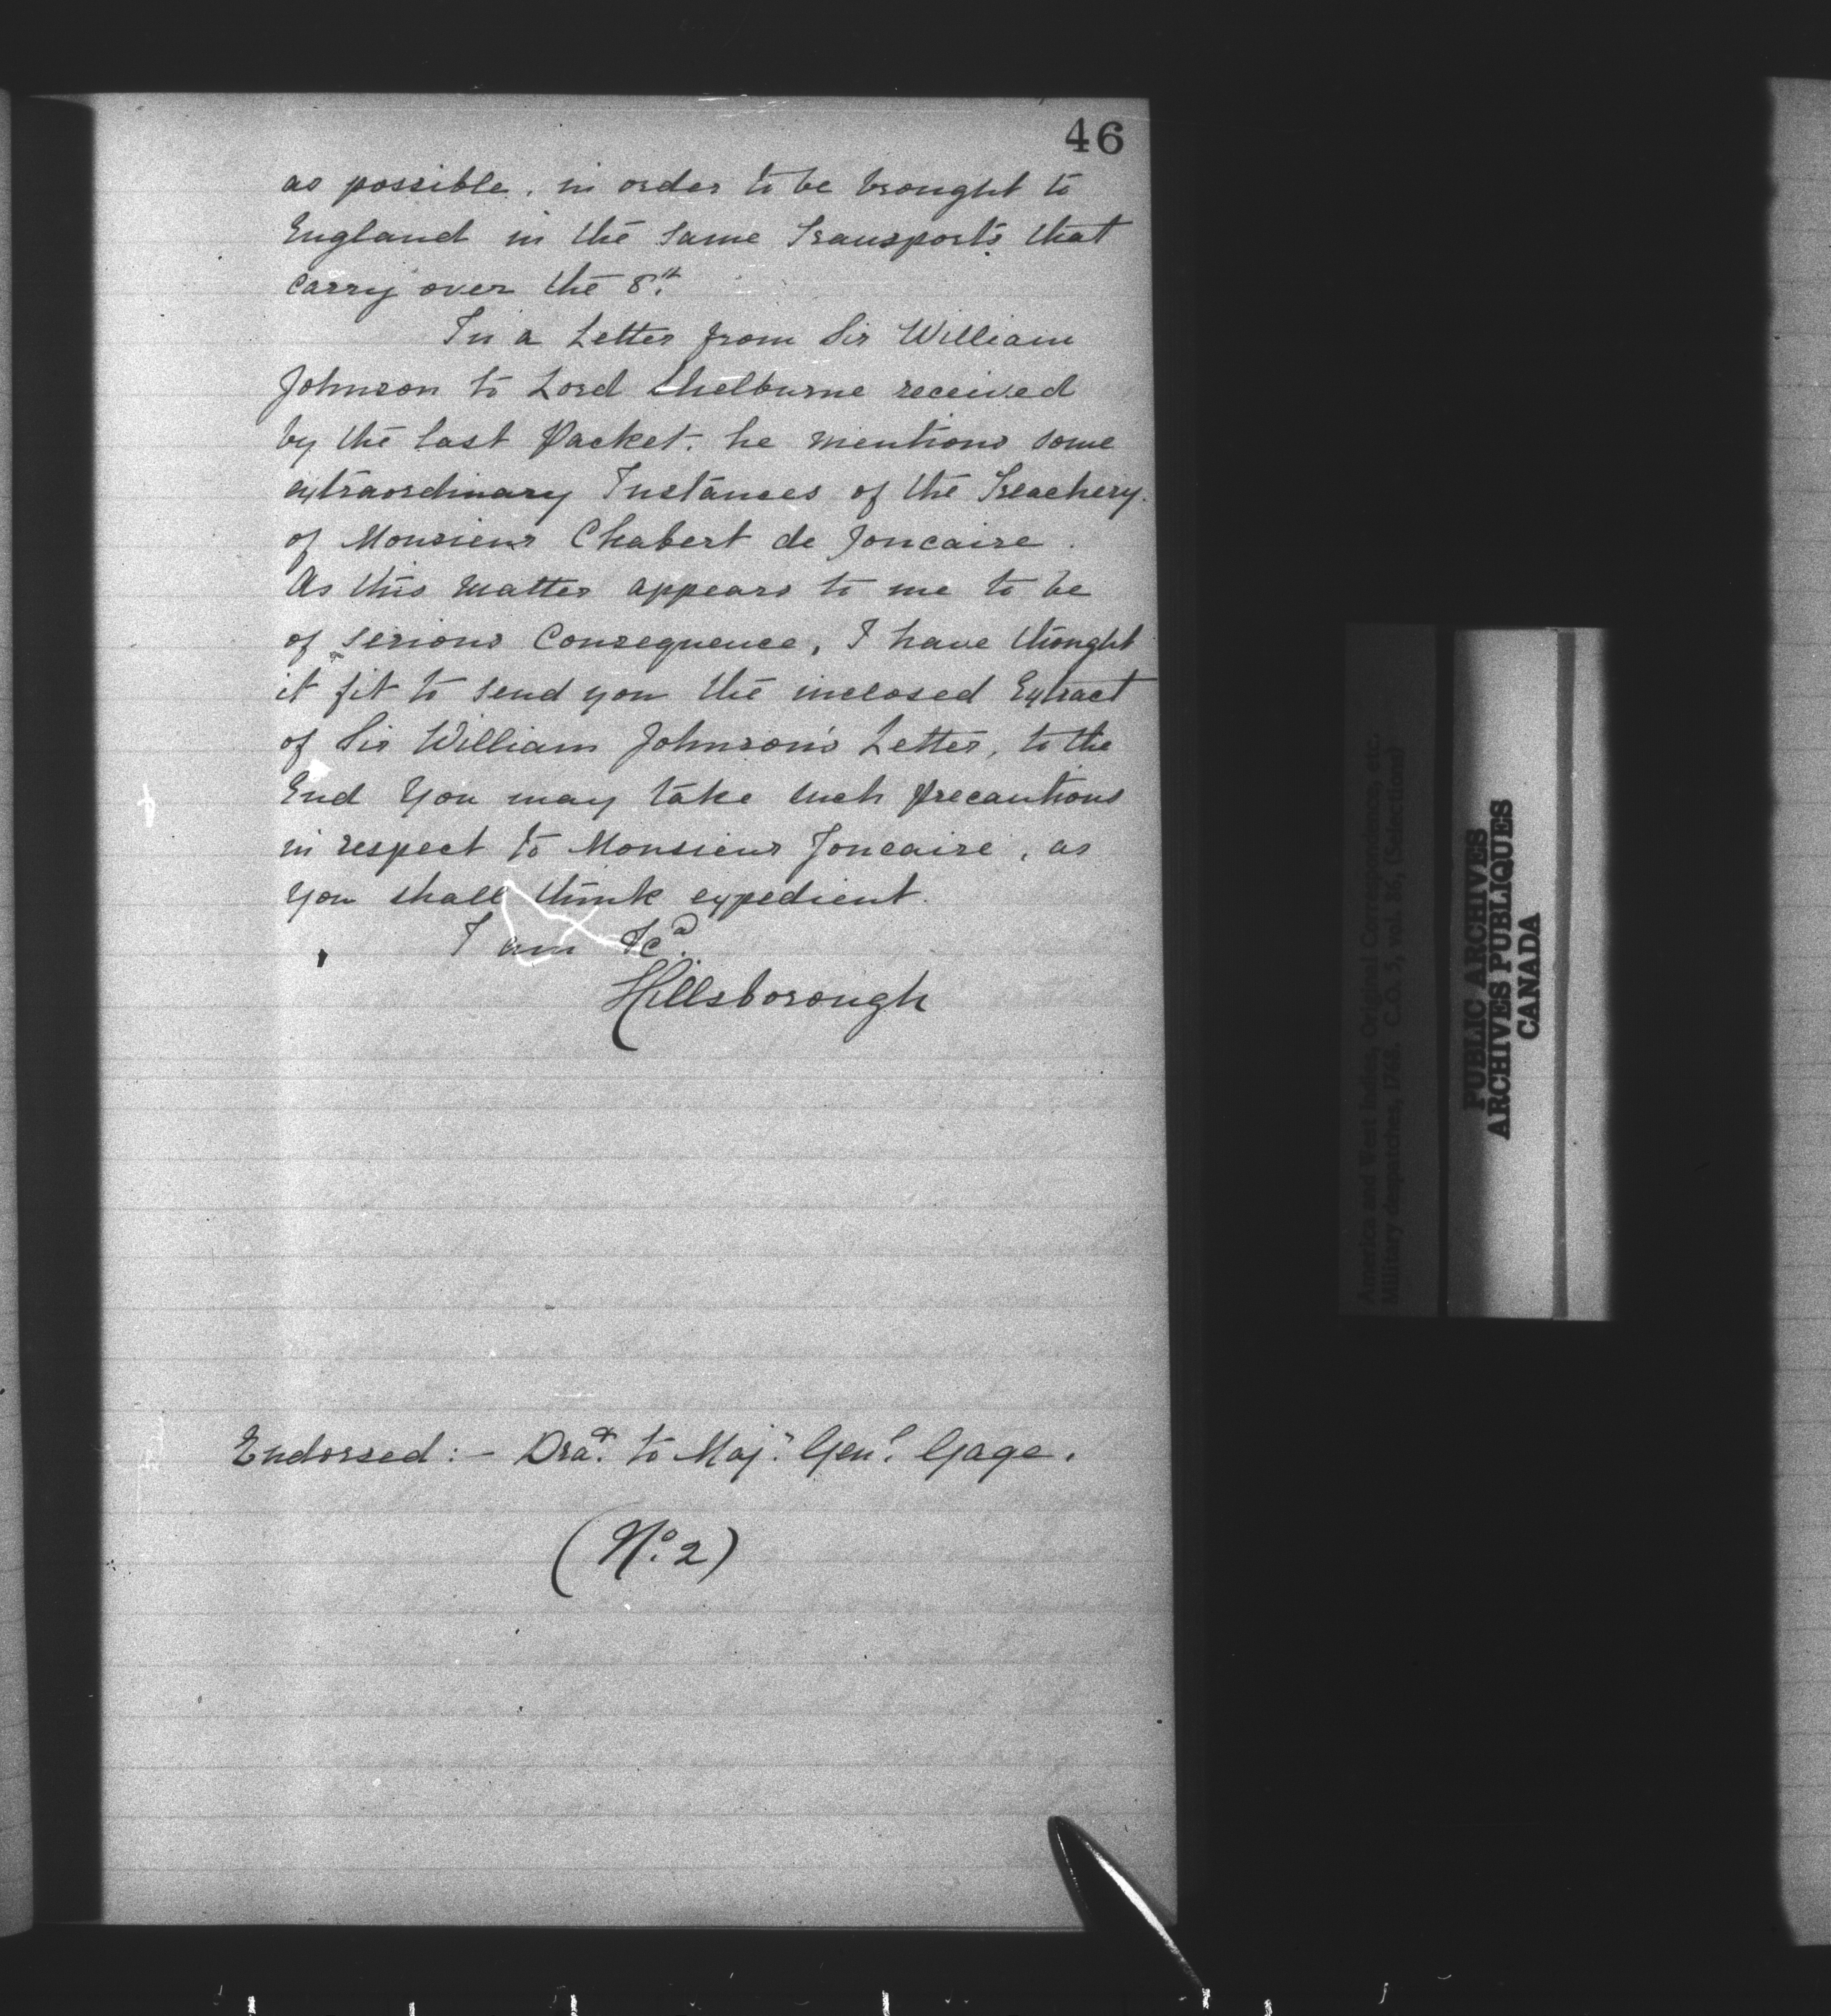 46
as possible, in order to be brought to
England in the same Transports that
carry over the 8th.
In a Letter from Sir William
Johnson to Lord Shelburne received
by the last Packet, he mentions some
extraordinary Instances of the Treachery
of Monsieur Chabert de Joncaire.
As this matter appears to me to be
of serious Consequence, I have thought
it fit to send you the inclosed Extract
of Sir William Johnson's Letter, to the
End You may take such precautions
in respect to Monsieur Joncaire, as
you shall think expedient.
I am &ca.
Hillsborough
Endorsed:- Drat. to Majr. Genl. Gage.
(No. 2)
America and West Indies, Original Correspondence, etc.
Military despatches, 1768. C.O. 5, vol. 86, (Selection)
PUBLIC ARCHIVES
ARCHIVES PUBLIQUES
CANADA